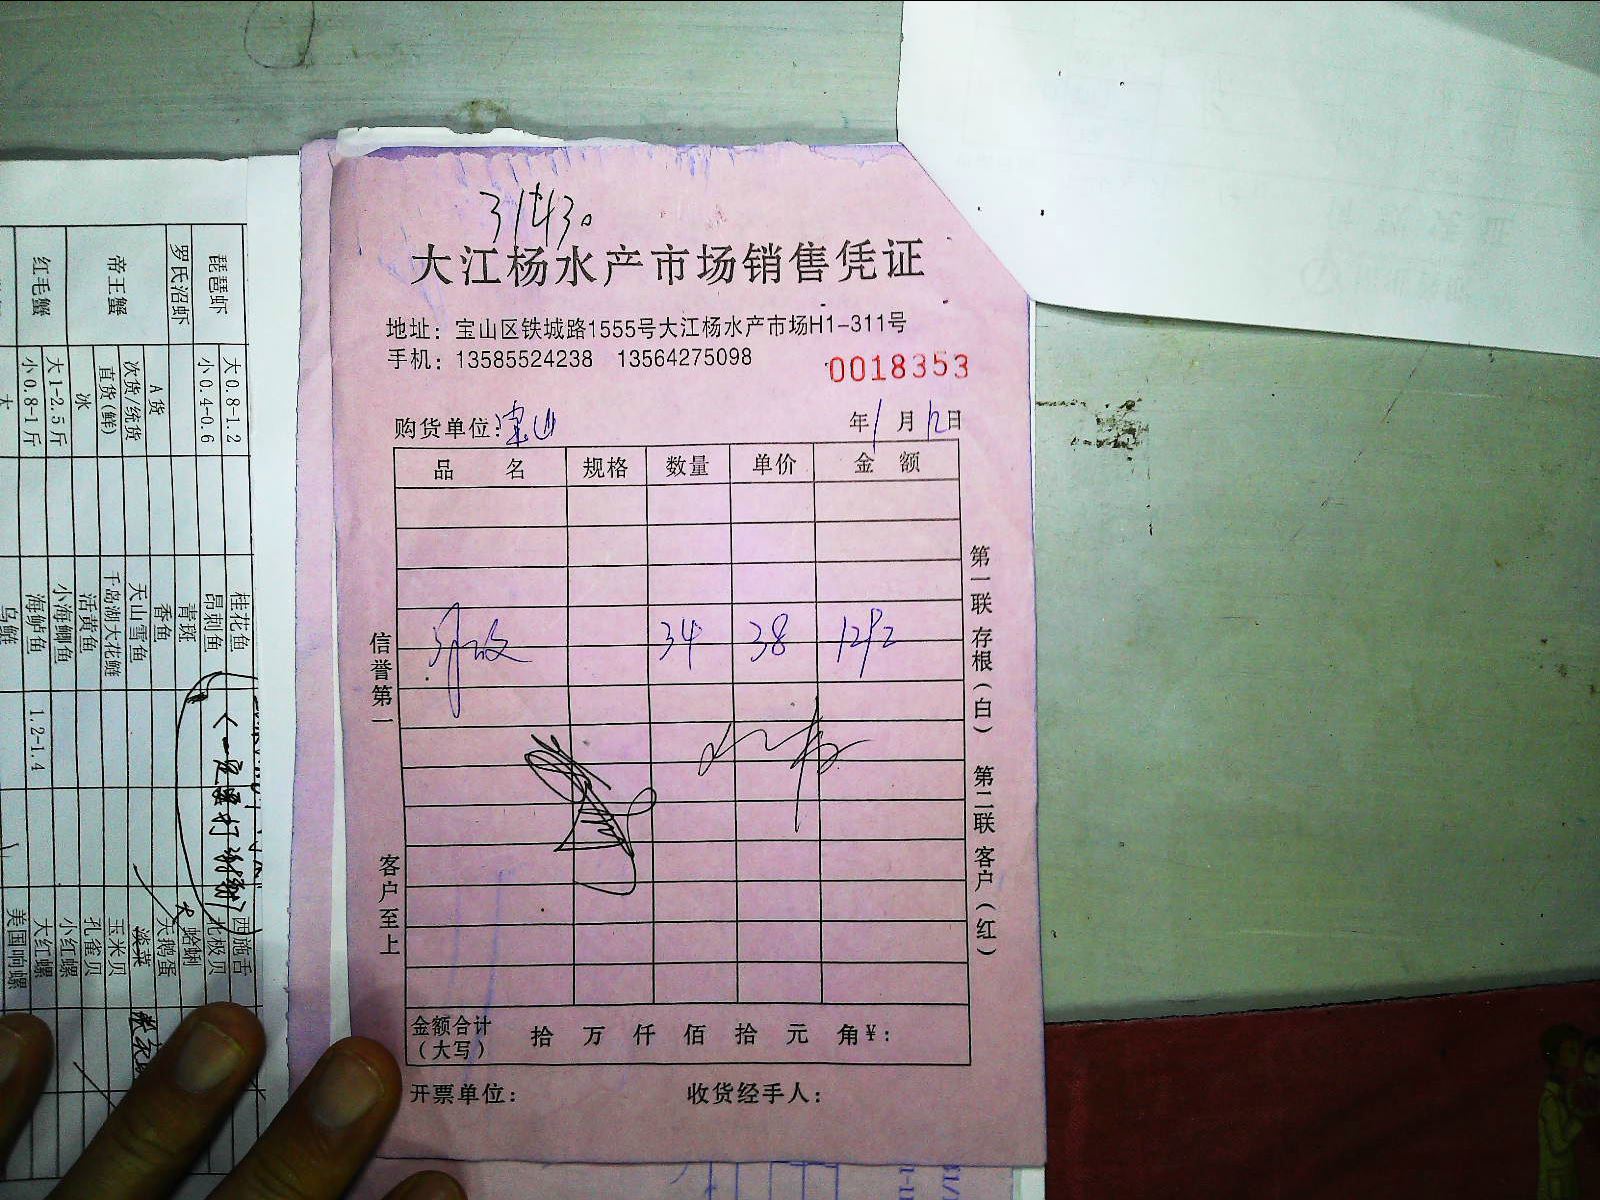 大江杨水产市场销售凭证
地址：宝山区铁城路1555号大江杨水产市场H1-311号
手机：13585524238 13564275098
0018353
购货单位：宝山 年1月12日
品 名 规格 数量 单价 金 额
34 38 1292
金额合计（大写） 拾 万 仟 佰 拾 元 角 ¥：
开票单位： 收货经手人：
信誉第一 客户至上
第一联 存根（白） 第二联 客户（红）
琵琶虾 大0.8-1.2 小0.4-0.6
罗氏沼虾
帝王蟹 A货 次货/统货 直货(鲜) 冰
红毛蟹 大1-2.5斤 小0.8-1斤
桂花鱼
昂刺鱼
青斑
香鱼
天山雪鱼
千岛湖大花鲢
活黄鱼
小海鲫鱼
海鲈鱼 1.2-1.4
乌鳢
西施舌
北极贝
蛤蜊
天鹅蛋
淡菜
玉米贝
孔雀贝
小红螺
大红螺
美国响螺